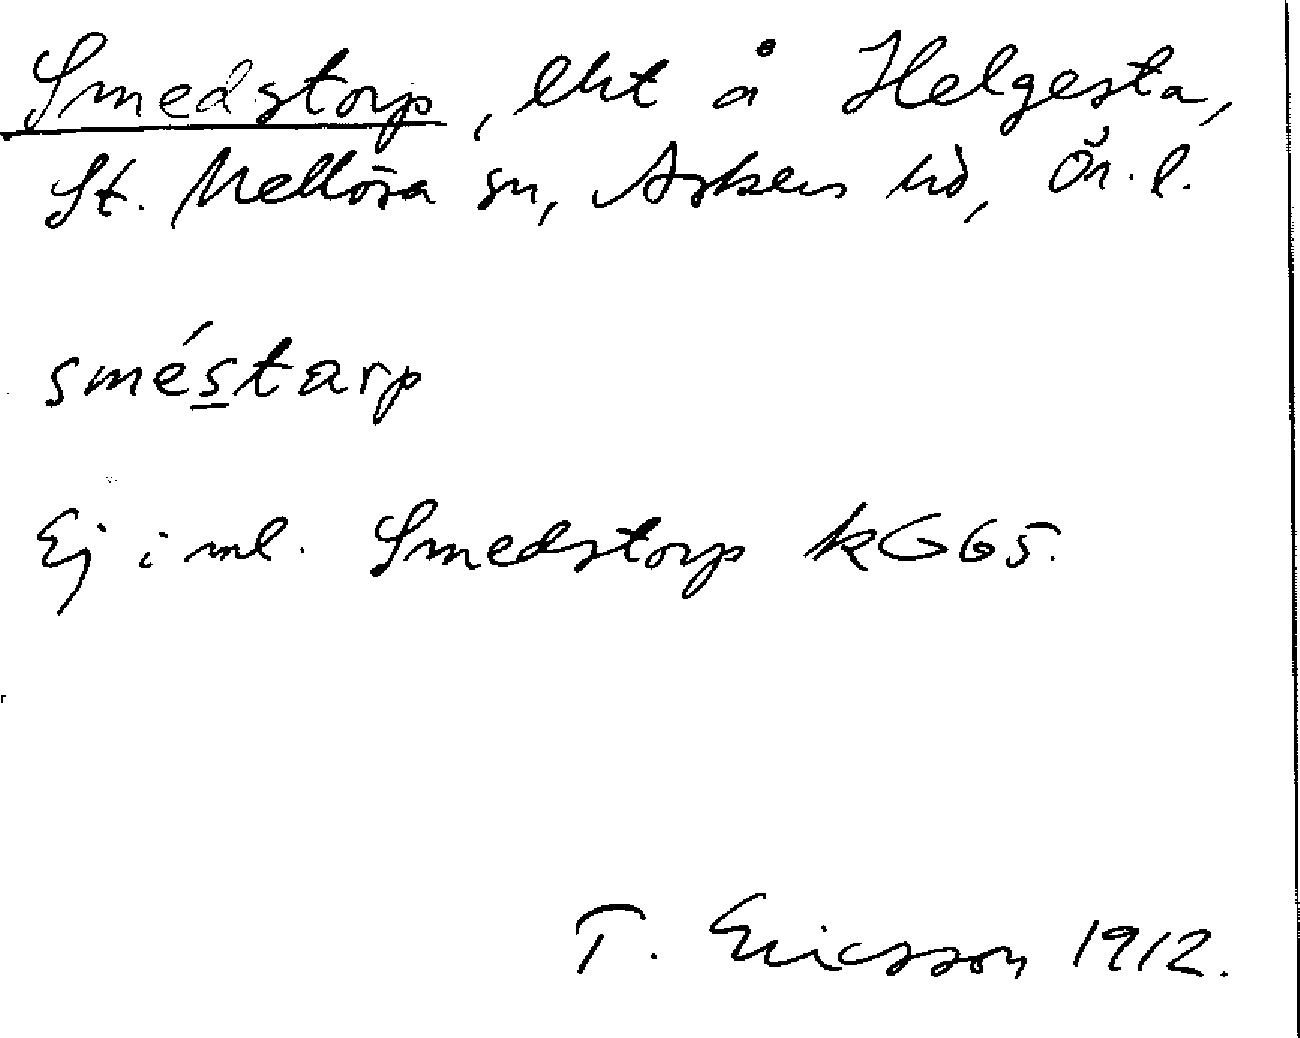 Smedstorp, lht å Helgesta,
St. Mellösa sn, Askers hd, Ör. l.
sméstarp
Ej i ml. Smedstorp kGG5.
T. Ericsson 1912.